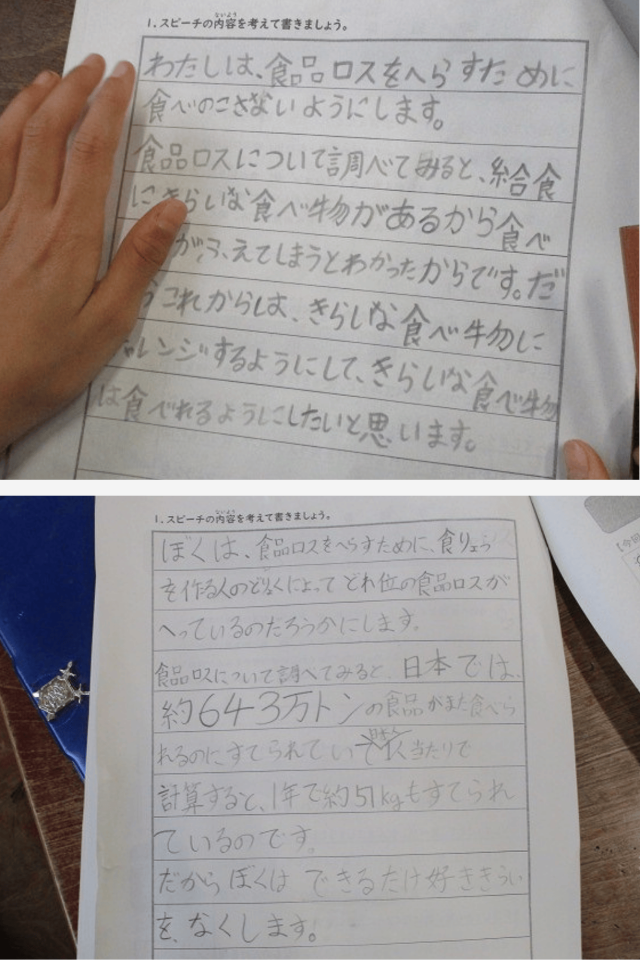 ないよう
1. スピーチの内容を考えて書きましょう。
わたしは、食品ロスをへらすために
食べのこさないようにします。
食品ロスについて調べてみると、給食
にきらいな食べ物があるから食べ
がふえてしまうとわかったからです。だ
これからは、きらいな食べ物に
レンジするようにして、きらいな食べ物
は食べれるようにしたいと思います。
ないよう
1. スピーチの内容を考えて書きましょう。
ぼくは、食品ロスをへらすために、食りょう
を作る人のどりょくによってどれ位の食品ロスが
へっているのだろうかにします。
食品ロスについて調べてみると、日本では、
約643万トンの食品がまだ食べら
れるのにすてられてい 当たりで
計算すると、1年で約51kgもすてられ
ているのです。
だからぼくはできるだけ好ききらい
を、なくします。